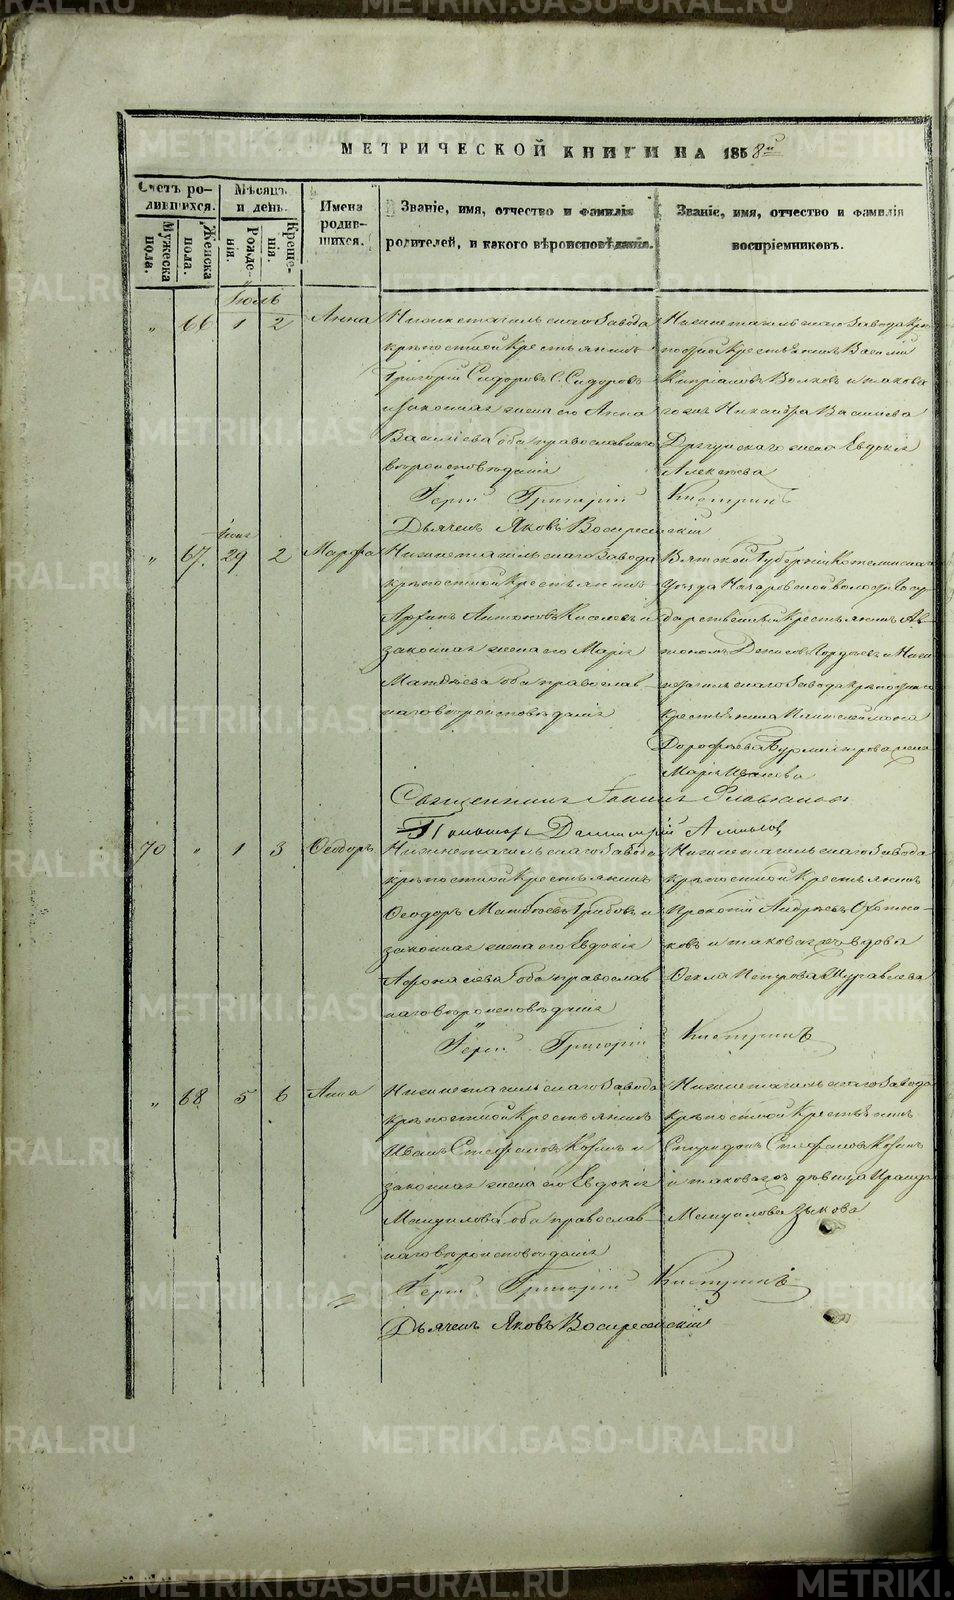 МЕТРИЧЕСКОЙ КНИГИ НА 1858й
Счетъ ро-
дившихся.
Мужеска
пола.
Женска
пола.
Мѣсяцъ
и день.
Рожде-
нія.
Креще-
нія.
Имена
родив-
шихся.
Званіе, имя, отчество и фамилія
родителей, и какого вѣроисповѣданія.
Званіе, имя, отчество и фамилія
воспріемниковъ.
Іюль
" 66 1 2 Анна
Нижнетагильскаго Завода
крѣпостной Крестьянинъ
Григорій Сидоровъ Сидоровъ
и законная жена его Анна
Васильева оба православнаго
вѣроисповѣданія
Нижнетагильскаго Завода Крѣ
постной Крестьянинъ Василій
Кипріановъ Волковъ и таковаго
гожъ Никанора Васильева
жена Евдокія
Алексѣева
Іерей Григорій
Дьячекъ Яковъ Воскресенскій
Іюня
" 67. 29 2 Марфа
Нижнетагильскаго Завода
крѣпостной Крестьянинъ
Антоновъ Киселевъ и
законная жена его Марія
Матвѣева оба православ-
наго вѣроисповѣданія
Вятской Губерніи
Уѣзда волости Госу
дарственный Крестьянинъ
Денисовъ и Ниж
нетагильскаго Завода крѣпостнаго
Крестьянина Пантелеймона
Дорофѣева Бурмистрова жена
Марія Иванова
Священникъ Іоаннъ Флавіановъ
Пономарь Димитрій
70 " 1 3 Ѳеодоръ
Нижнетагильскаго Завода
крѣпостной Крестьянинъ
Ѳеодоръ Матвѣевъ Грибовъ и
законная жена его Евдокія
Афонасіева оба православ
наго вѣроисповѣданія
Нижнетагильскаго Завода
крѣпостной Крестьянинъ
Прокопій Андреевъ Охотни-
ковъ и таковагожъ вдова
Ѳекла Петрова Журавлева
Іерей Григорій
" 68 5 6 Анна
Нижнетагильскаго Завода
крѣпостной Крестьянинъ
Иванъ Стефановъ Козинъ и
законная жена его Евдокія
Мануилова оба православ-
наго вѣроисповѣданія
Нижнетагильскаго Завода
крѣпостной Крестьянинъ
Спиридонъ Стефановъ Козинъ
и таковагожъ дѣвица Ираида
Мануилова Зыкова
Іерей Григорій
Дьячекъ Яковъ Воскресенскій
METRIKI.GASO-URAL.RU